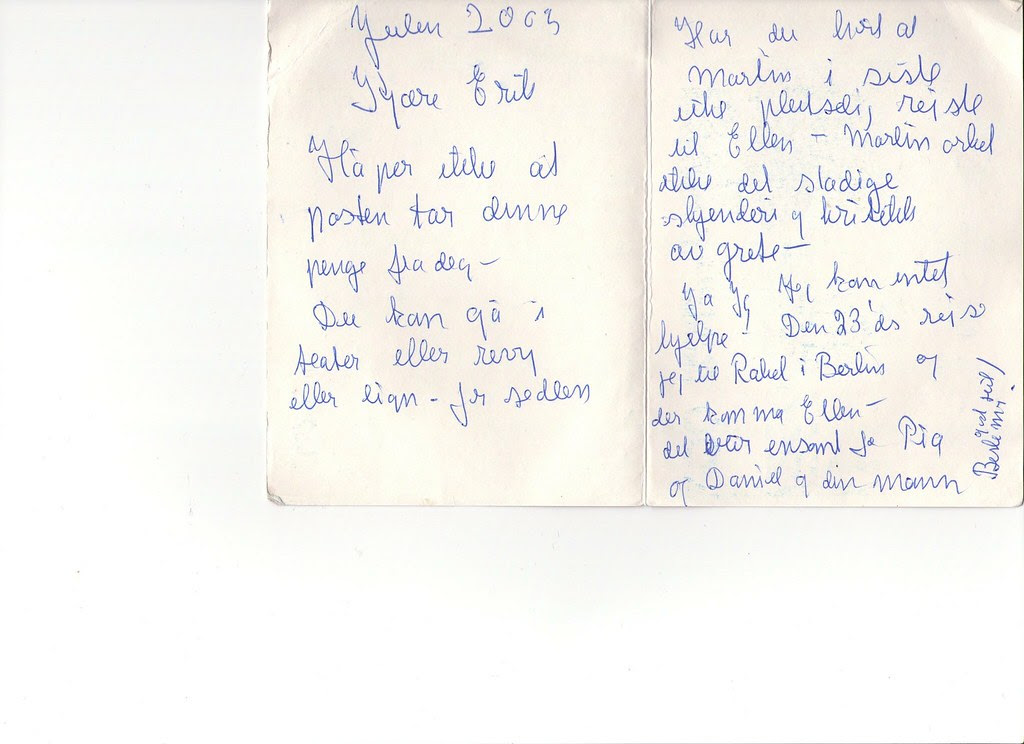 Julen 2003
Kjære Erik
Håper ikke at
posten tar dinne
penge fra deg –
Du kan gå i
teater eller revy
eller lign – for sedlen
Har du hørt at
Martin i siste
uke plutselig rejste
til Ellen – Martin orket
ikke det stadige
skjenderi og kritikk
av Grete –
Ja Jeg kan intet
hjelpe! Den 23'ds rejse
jeg til Rakel i Berlin og
der kommer Ellen –
det var ensomt for Pia
og Daniel og din mann